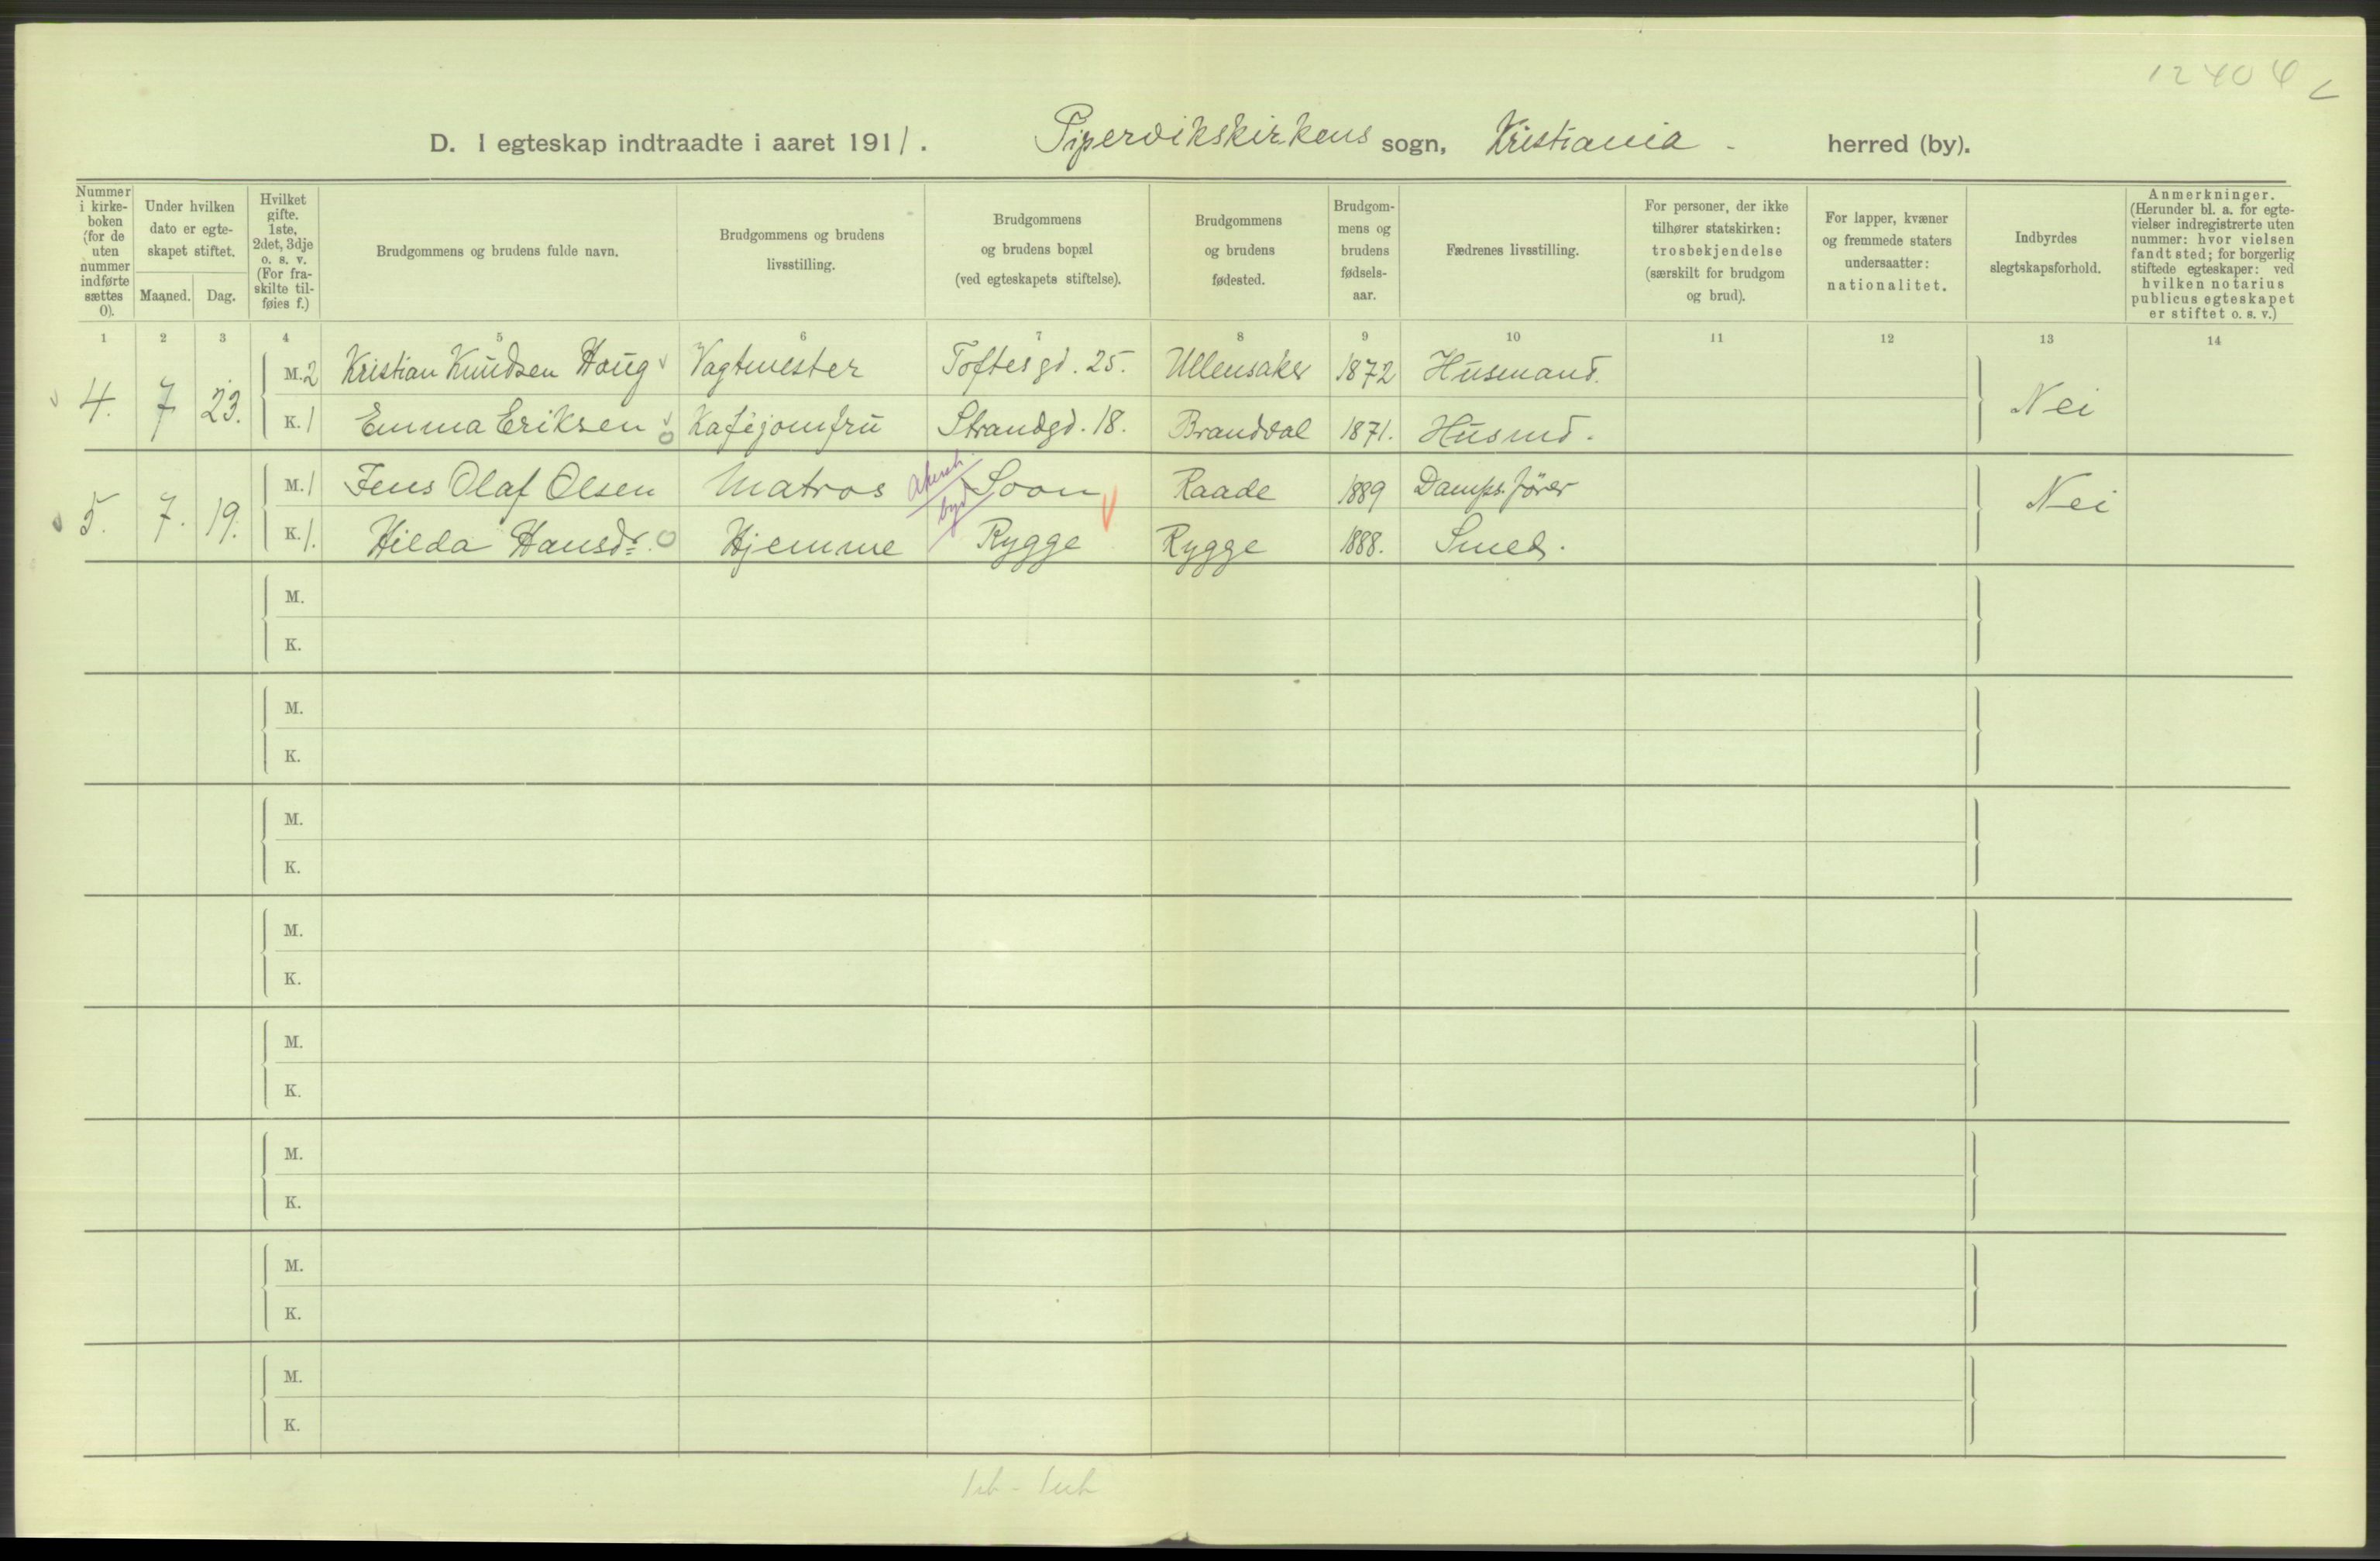 12404
D. I egteskap indtraadte i aaret 1911. Pipervikskirkens sogn, Kristiania - herred (by).
Nummer i kirke-boken (for de uten nummer indførte sættes 0).
Under hvilken dato er egte-skapet stiftet.
Maaned. Dag.
Hvilket gifte. 1ste, 2det, 3dje o. s. v. (For fra-skilte til-føies f.)
Brudgommens og brudens fulde navn.
Brudgommens og brudens livsstilling.
Brudgommens og brudens bopæl (ved egteskapets stiftelse).
Brudgommens og brudens fødested.
Brudgom-mens og brudens fødsels-aar.
Fædrenes livsstilling.
For personer, der ikke tilhører statskirken: trosbekjendelse (særskilt for brudgom og brud).
For lapper, kvæner og fremmede staters undersaatter: nationalitet.
Indbyrdes slegtskapsforhold.
Anmerkninger. (Herunder bl. a. for egte-vielser indregistrerte uten nummer: hvor vielsen fandt sted; for borgerlig stiftede egteskaper: ved hvilken notarius publicus egteskapet er stiftet o. s. v.)
1 2 3 4 5 6 7 8 9 10 11 12 13 14
4. 7 23. M. 2 Kristian Knudsen Haug Vagtmester Toftesgd. 25. Ullensaker 1872 Husmand. Nei
K. 1 Emma Eriksen Kaféjomfru Strandgd. 18. Brandval 1871. Husmd.
5. 7. 19. M. 1 Jens Olaf Olsen Matros Soon Raade 1889 Dampsfører Nei
K. 1. Hilda Hansdr. Hjemme Rygge Rygge 1888. Smed.
M.
K.
M.
K.
M.
K.
M.
K.
M.
K.
M.
K.
M.
K.
M.
K.